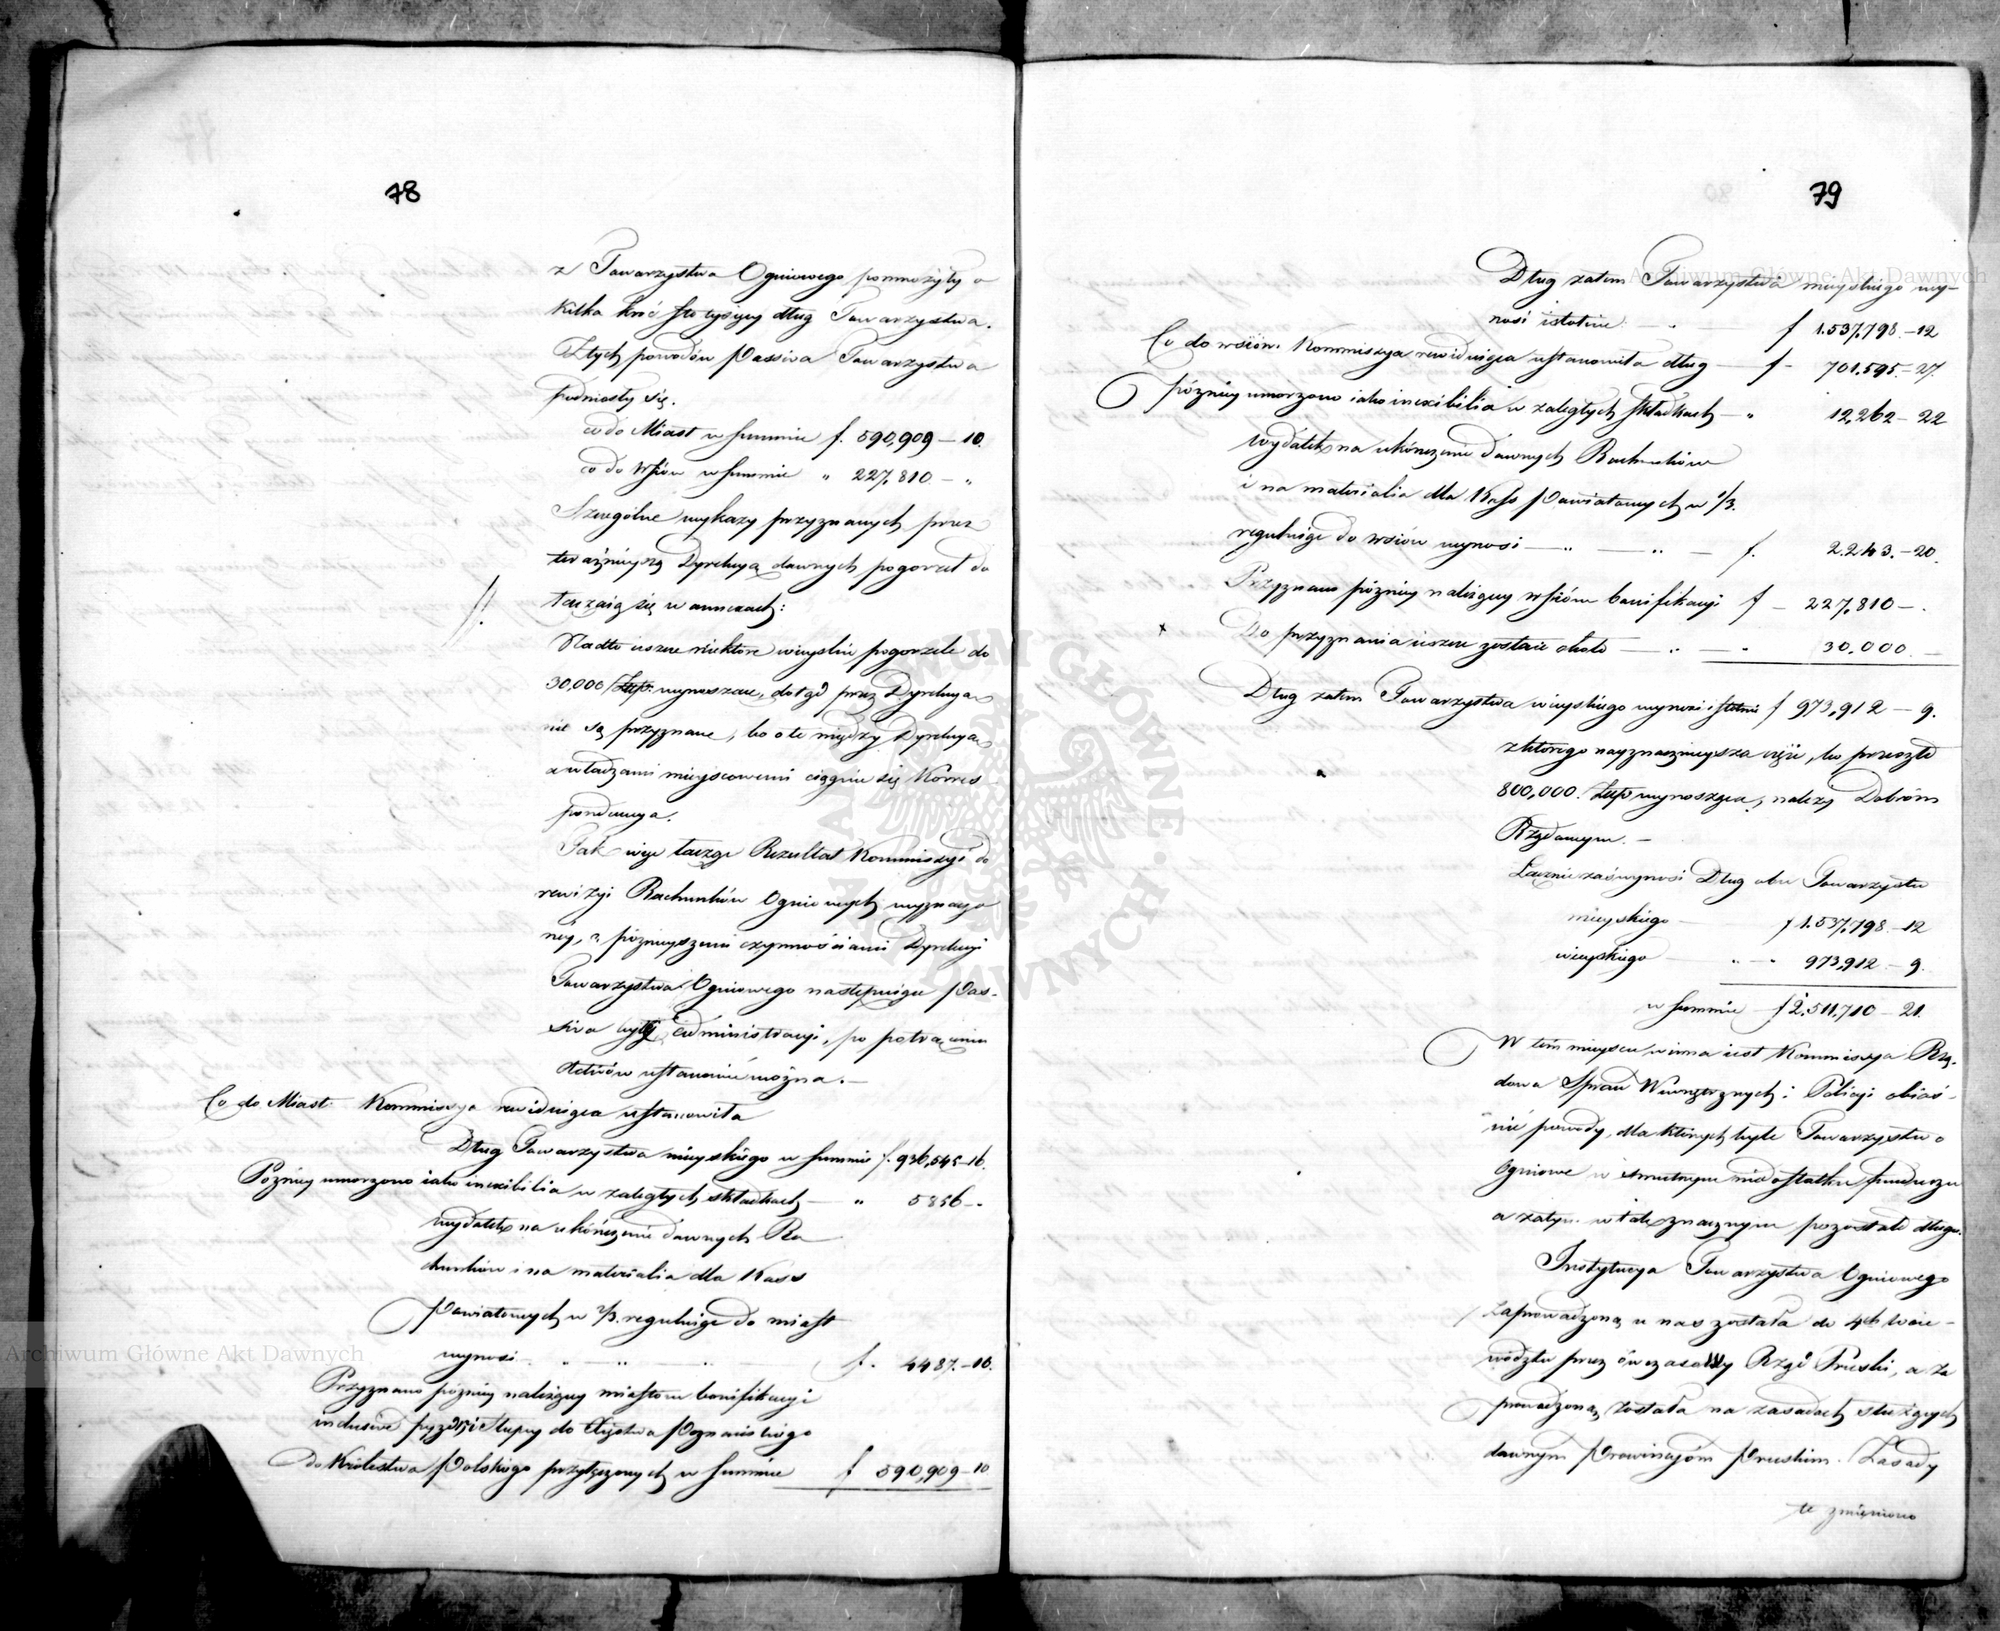 78
z Towarzystwa Ogniowego pomnożyły o
kilka kroć sto tysięcy dług Towarzystwa.
Z tych powodów Passiva Towarzystwa
podniosły się.
co do Miast w summie f. 590,909 — 10.
co do Wsiów w summie " 227,810. — "
Szczególne wykazy przyznanych przez
teraźnieyszą Dyrekcyą dawnych pogorzel do
łączaią się w annexach:
Nadto ieszcze niektóre wieyskie pogorzele do
30,000 Złłp. wynoszące, dotąd przez Dyrekcyą
nie są przyznane, bo o te między Dyrekcyą
a władzami mieyscowemi ciągnie się Korres
pondencya.
Tak więc łącząc Rezultat Kommissyi do
rewizyi Rachunków Ogniowych wyznaczo
ney, z późnieyszemi czynnościami Dyrekcyi
Towarzystwa Ogniowego następuiące Pas-
siva byłey administracyi, po potrąceniu
Activów ustanowić można. —
Co do Miast Kommissya rewiduiąca ustanowiła
Dług Towarzystwa mieyskiego w summie f. 936,545 — 16.
Późniey umorzono iako inexibilia w zaległych składkach — " 5856 — "
wydatek na ukończenie dawnych Ra
chunków i na materialia dla Kass
Powiatowych w 2/3. reguluiąc do miast
wynosi — " — " — " f. 4487. — 16.
Przyznano późniey należącey miastom bonifikacyi
inclusive pyzdri i Słupcy do Xięstwa Poznańskiego
do Królestwa Polskiego przyłączonych w summie f 590,909 — 10
79
Dług zatem Towarzystwa mieyskiego wy-
nosi istotnie — " — f 1.537,798. — 12
Co do wsiów. Kommissya rewiduiąca ustanowiła dług — f — 701.595. — 27.
późniey umorzono iako inexibilia w zaległych składkach — " 12,262 — 22
wydatek na ukończenie dawnych Rachunków
i na materialia dla Kass Powiatowych w 1/3.
reguluiąc do wsiów wynosi — " — " — f. 2.243. — 20.
Przyznano późniey należącey wsióm bonifikacyi f — 227,810 — .
Do przyznania ieszcze zostaie około — " — " 30.000. —
Dług zatem Towarzystwa wieyskiego wynosi istotnie f 973,912 — 9.
z którego nayznacznieysza część, bo przeszło
800,000. Złłp wynosząca, należy Dobróm
Rządowym. —
Łącznie zaś wynosi Dług obu Towarzystw
mieyskiego — f 1.537,798. — 12
wieyskiego — " — " 973,912 — 9.
w summie — f 2,511,710 — 21.
W tém mieyscu winna iest Kommissya Rzą-
dowa Spraw Wewnętrznych i Policyi obiaś-
nić powody, dla których byłe Towarzystwo
Ogniowe w smutnym niedostatku funduszu
a zatym w tak znacznym pozostało długu.
Instytucya Towarzystwa Ogniowego
zaprowadzoną u nas została do 4ch Woie-
wództw przez ówczasowy Rząd Pruski, a za
prowadzoną została na zasadach służących
dawnym Prowincyóm Pruskim. Zasady
te zmieniono
Archiwum Główne Akt Dawnych
Archiwum Główne Akt Dawnych
ARCHIWUM GŁÓWNE AKT DAWNYCH